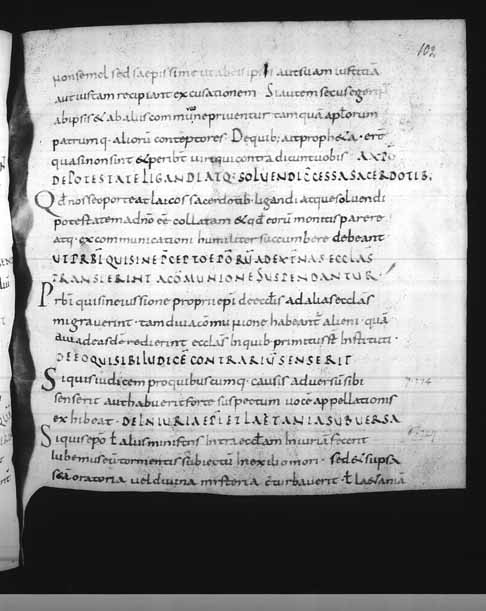 102
non semel sed saepissime ut ab eis ipsi aut suam iustitiã
aut iustam recipiant excusationem · Si autem secus egerint
ab ipsis & ab aliis communione priventur tamquã aptorum
patrumq · aliorũ contẽptores · De quib; ait propheta · erũt
quasi non sint & peribt viri qui contradicunt vobis ·
DE POTESTATE LIGANDI ATQ · SOLVENDI C̃CESSA SACERDOTIB;
Qđ nosse oporteat laicos sacerdotib · ligandi atque solvendi
potestatem a dño eẽ collatam & qđ eorũ monitis parere
atq · excommunicationi humiliter succumbere debeant ·
UT P̃RBI QUI SINE P̃CEPTO EP̃ORŨ AD EXT̃NAS ECCLAS
TRANSIERINT A CÕMUNIONE SUSPENDANTUR ·
Prbi qui sine iussione proprii epi decc̃siis ad alias ecclas
migraverint · tamdiu a cõmunione habeant alieni · quã
diu ad easdẽ redierint ecclas in quib primitus st̃ instituti ·
DE EO QUI SIBI IUDICẼ CONTRARIŨ SENSERIT
Si quis iudicem pro quibuscumq · causis adversũ sibi
senserit aut habuerit forte suspectum vocẽ appellationis
exhibeat · DE INIURIA EP̃I ET LAETANIA SUBVERSA
Si quis epõ ł aliis ministris intra eccłam iniuriã fecerit
iubemus eũ tormentis subiectũ in exilio mori · sed & si supsa
scã oratoria vel divina misteria c̃turbaverit · ł laetaniã